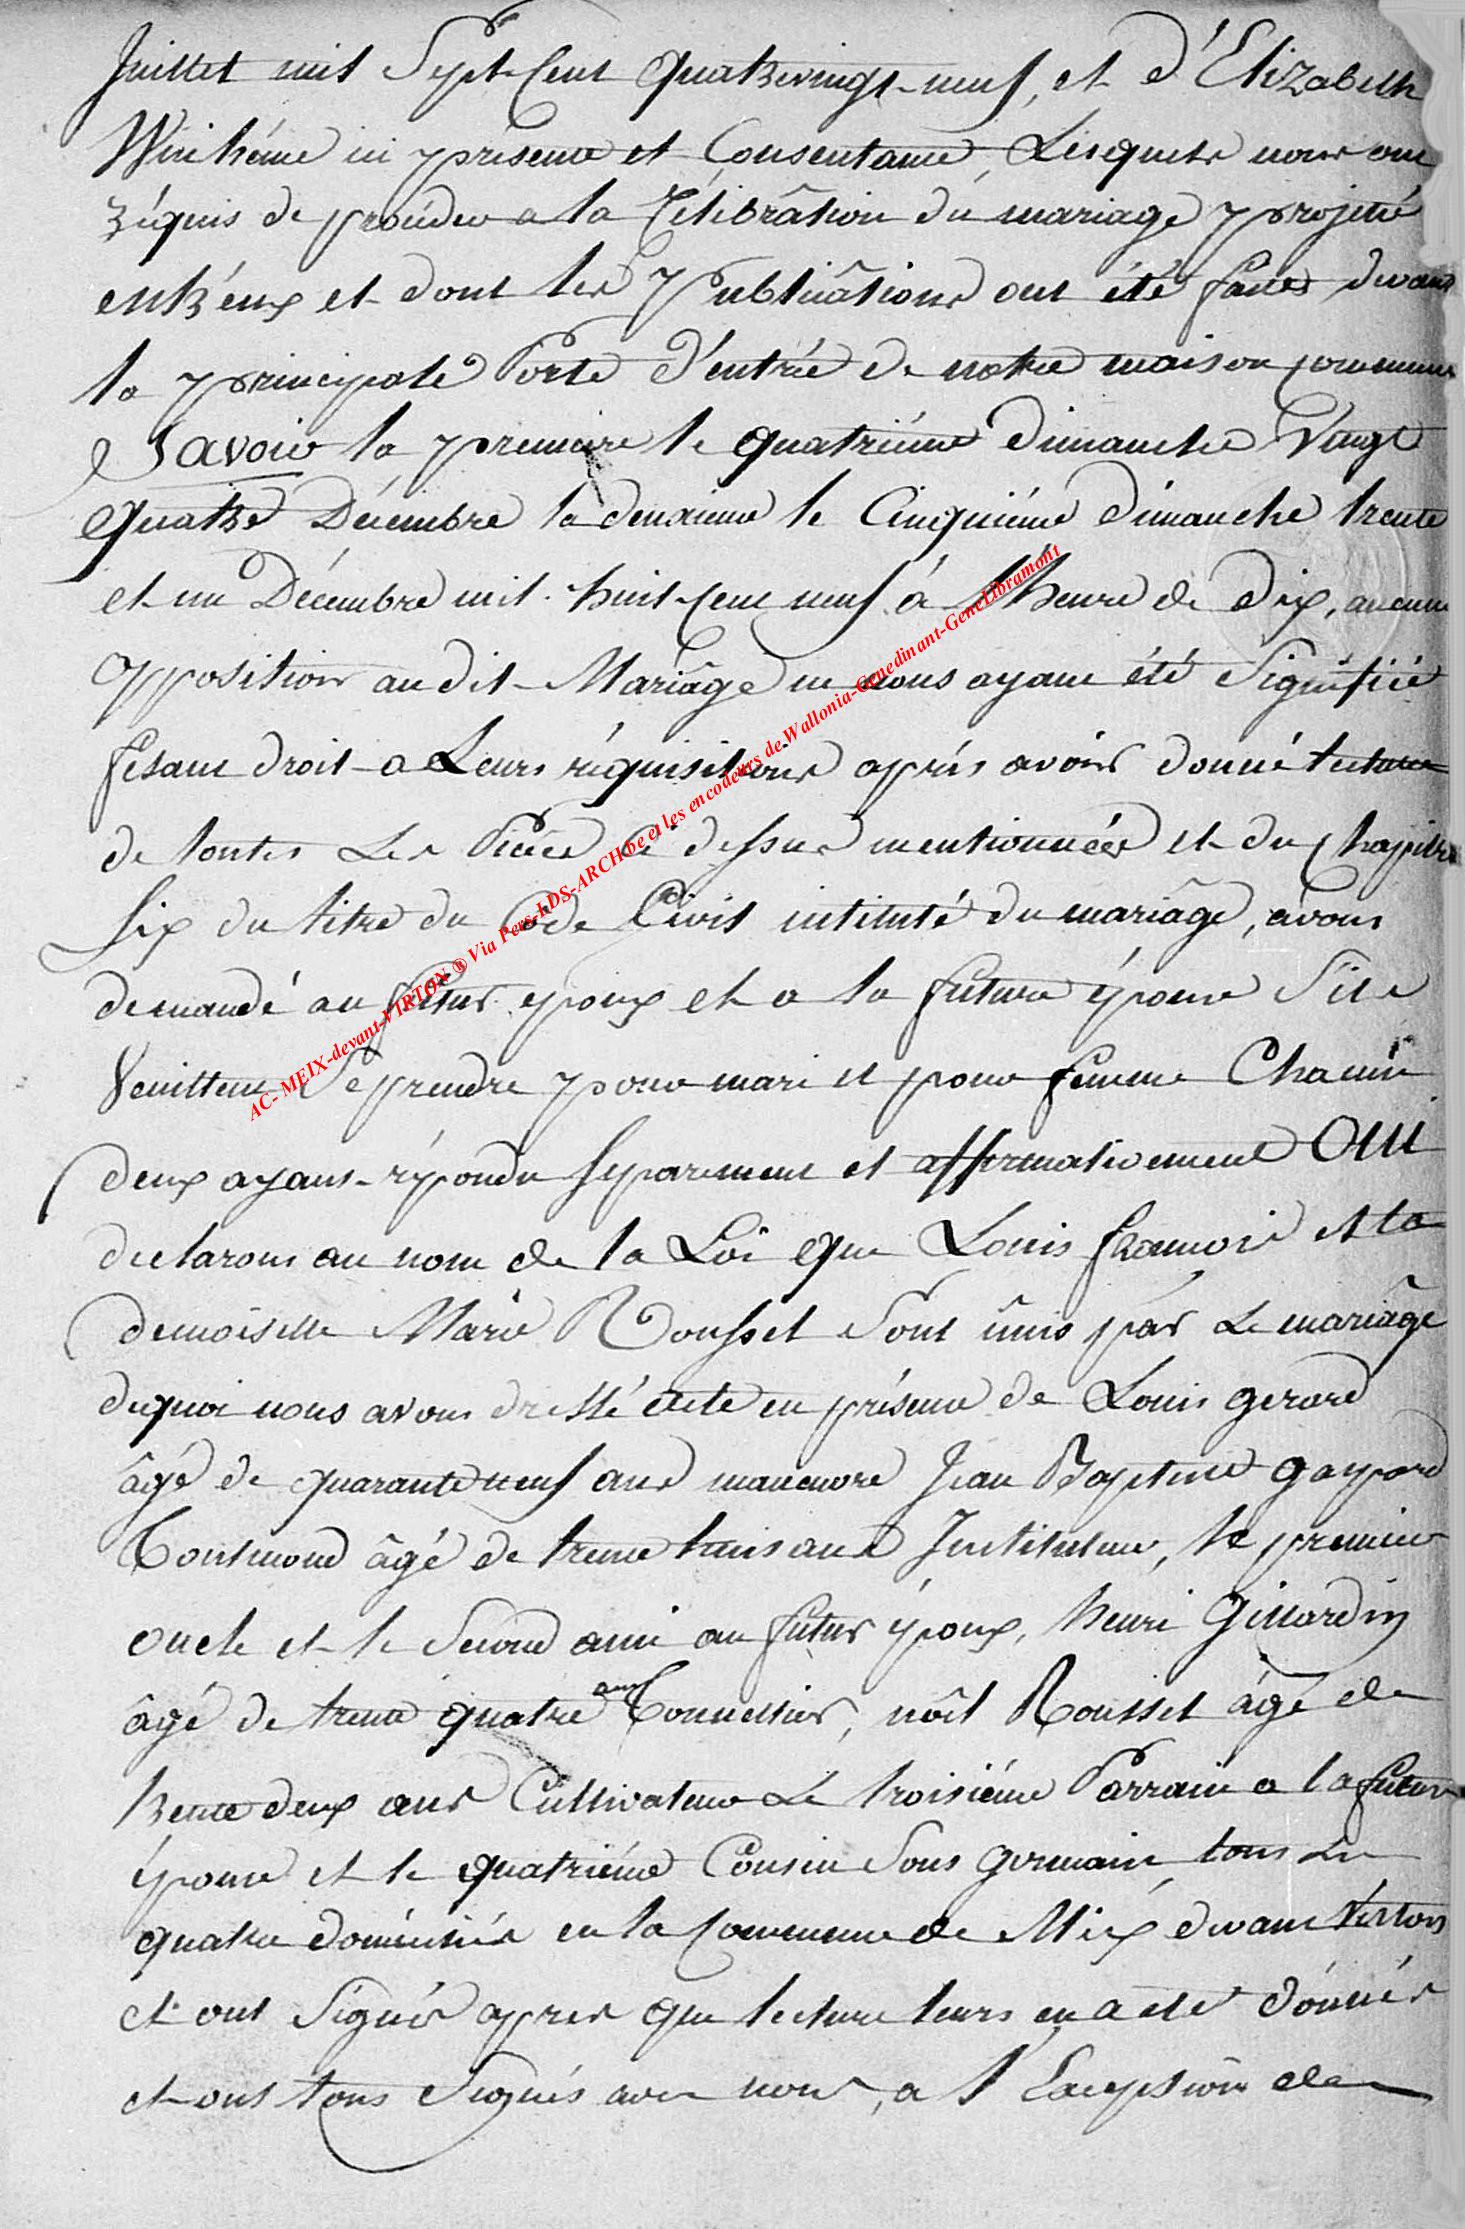 Juillet mil Sept-Cent quatrevingt-neuf, et d'Elizabeth
Wirihéme ici présente et Consentante, Lesquels nous ont
réquis de procéder a la Célébrâtion du mariage projetté
entr'eux et dont les Publicâtions ont été faites devant
la principale Porte d'entrée de notre maison commune
Savoir la premiere le quatriéme Dimanche Vingt
quatre Décembre la deuxieme le Cinquiéme Dimanche trente
et un Décembre mil-huit-Cent neuf à l'heure de Dix, aucune
opposition audit Mariâge ne nous ayant été Signifiée
fesant droit a Leurs réquisitoire après avoir donné lecture
de toutes Les Pieces ci dessus mentionnées et du Chapitre
Six du titre du Code Civil intitulé du mariâge, avons
demandé au futur époux et a la future épouse S'ils
Veuillent Se prendre pour mari et pour femme Chacun
deux ayant répondu separement et affirmativement OUI
declarons au nom de la Loi que Louis françois et la
demoiselle Marie Rousset Sont ûnis par Le mariâge
dequoi nous avons dressé acte en présence de Louis gerard
âgé de quarante neuf ans manœuvre Jean Baptiste gaspard
âgé de trente trois ans Instituteur, le premier
oncle et le Second ami au futur époux, henri Gillardin
âgé de trente quatre ans Tonnellier, nöel Rousset âgé de
trente deux ans Cultivateur Le troisiéme Parrain a la future
épouse et le quatriéme Cousin Sous germain, tous Les
quatre domiciliés en la Commune de Meix devant Virton
et ont Signés apres que lecture leurs en a été donnés
et ont tous Signés avec nous, a l'Exception de
AC- MEIX-devant-VIRTON ® Via Pers-LDS-ARCH be et les encodeurs de Wallonia-Genedinant-GeneLibramont